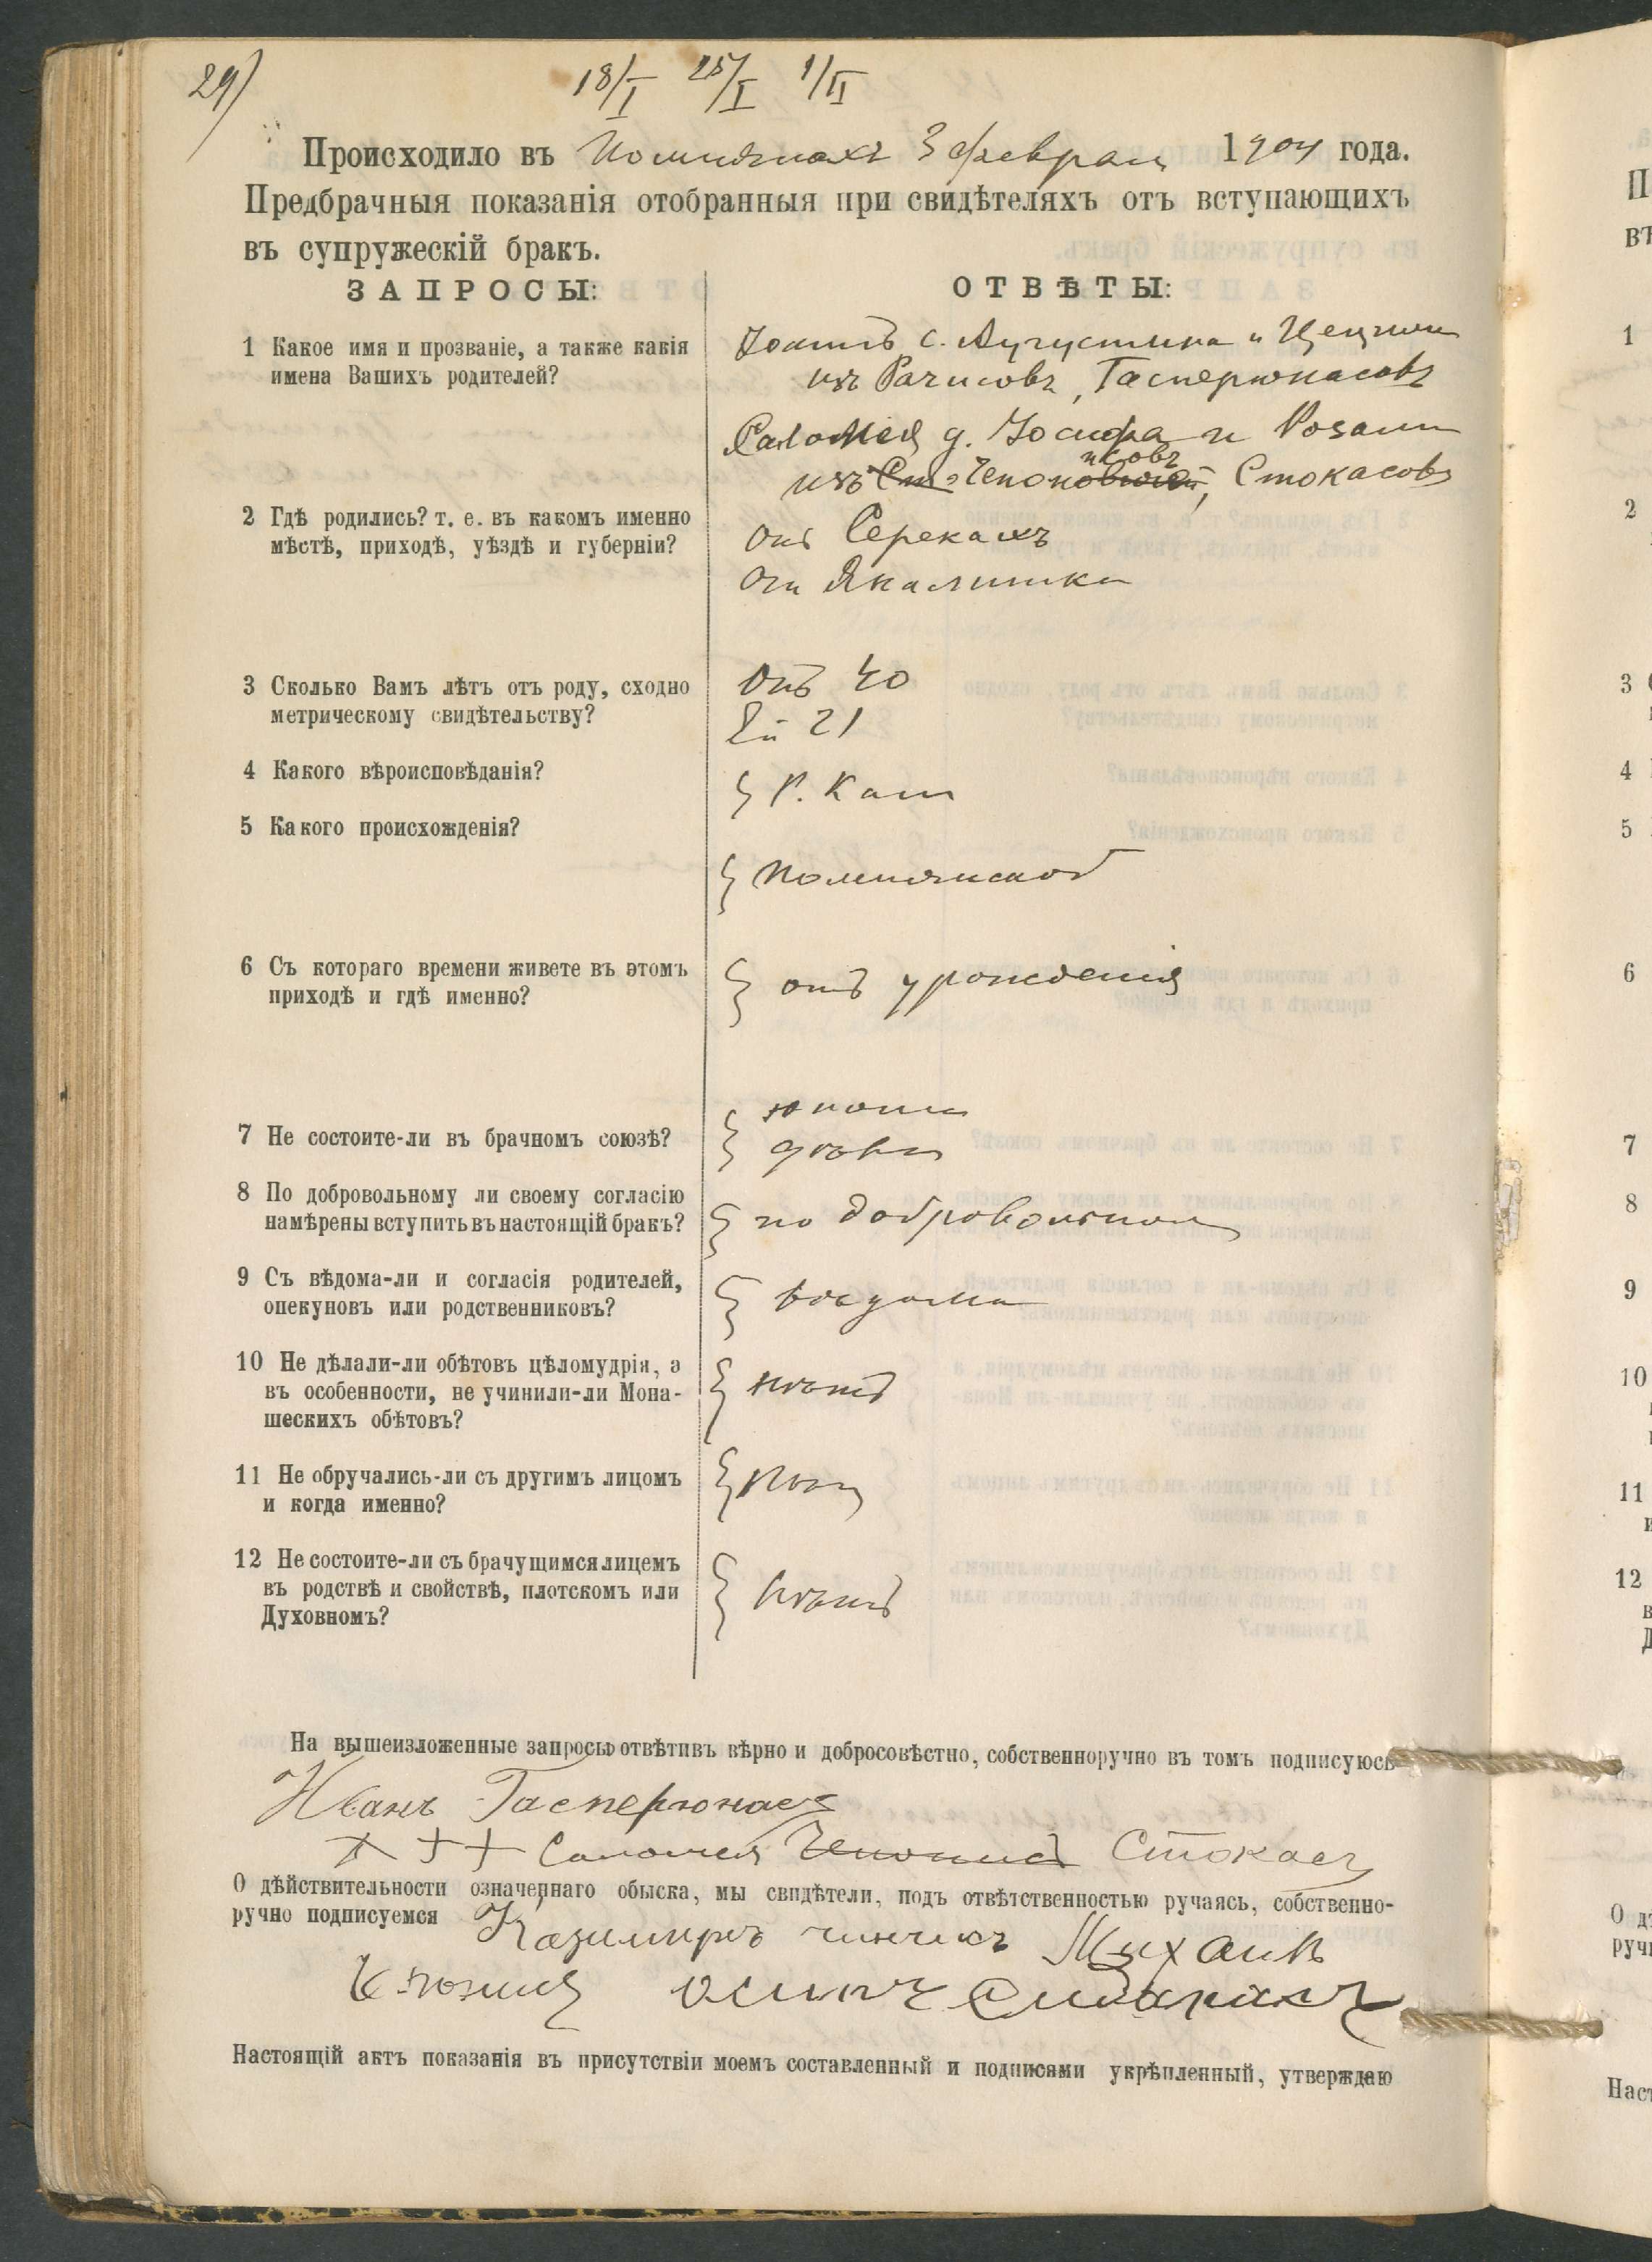 29)
18/I 25/I 1/II
Происходило въ 3 февраля 1904 года.
Предбрачныя показанія отобранныя при свидѣтеляхъ отъ вступающихъ
въ супружескій бракъ.
ЗАПРОСЫ:
ОТВѢТЫ:
1 Какое имя и прозваніе, а также какія
имена Вашихъ родителей?
с. Августина и
изъ Рачисовъ, Гасперюнасовъ
Саломея д. Іосифа и Розалии
изъ Чепонисовъ, Стокасовъ
2 Гдѣ родились? т. е. въ какомъ именно
мѣстѣ, приходѣ, уѣздѣ и губерніи?
онъ
она
3 Сколько Вамъ лѣтъ отъ роду, сходно
метрическому свидѣтельству?
Онъ 40
Ей 21
4 Какого вѣроисповѣданія?
Р. Кат
5 Какого происхожденія?
6 Съ котораго времени живете въ этомъ
приходѣ и гдѣ именно?
отъ урожденія
7 Не состоите-ли въ брачномъ союзѣ?
юноша
дѣва
8 По добровольному ли своему согласію
намѣрены вступить въ настоящій бракъ?
по добровольном
9 Съ вѣдома-ли и согласія родителей,
опекуновъ или родственниковъ?
вѣдома
10 Не дѣлали-ли обѣтовъ цѣломудрія, а
въ особенности, не учинили-ли Мона-
шескихъ обѣтовъ?
нѣтъ
11 Не обручались-ли съ другимъ лицомъ
и когда именно?
нѣтъ
12 Не состоите-ли съ брачущимся лицемъ
въ родствѣ и свойствѣ, плотскомъ или
Духовномъ?
нѣтъ
На вышеизложенные запросы отвѣтивъ вѣрно и добросовѣстно, собственноручно въ томъ подписуюсь
Иванъ Гасперюнасъ
+ + + Саломея Стокасъ
О дѣйствительности означеннаго обыска, мы свидѣтели, подъ отвѣтственностью ручаясь, собственно-
ручно подписуемся Казимиръ Михаилъ
Настоящій актъ показанія въ присутствіи моемъ составленный и подписями укрѣпленный, утверждаю